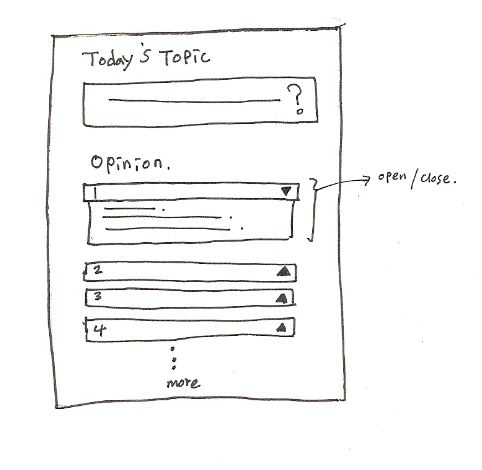 Today's Topic
?
Opinion.
1
open/close.
2
3
4
more